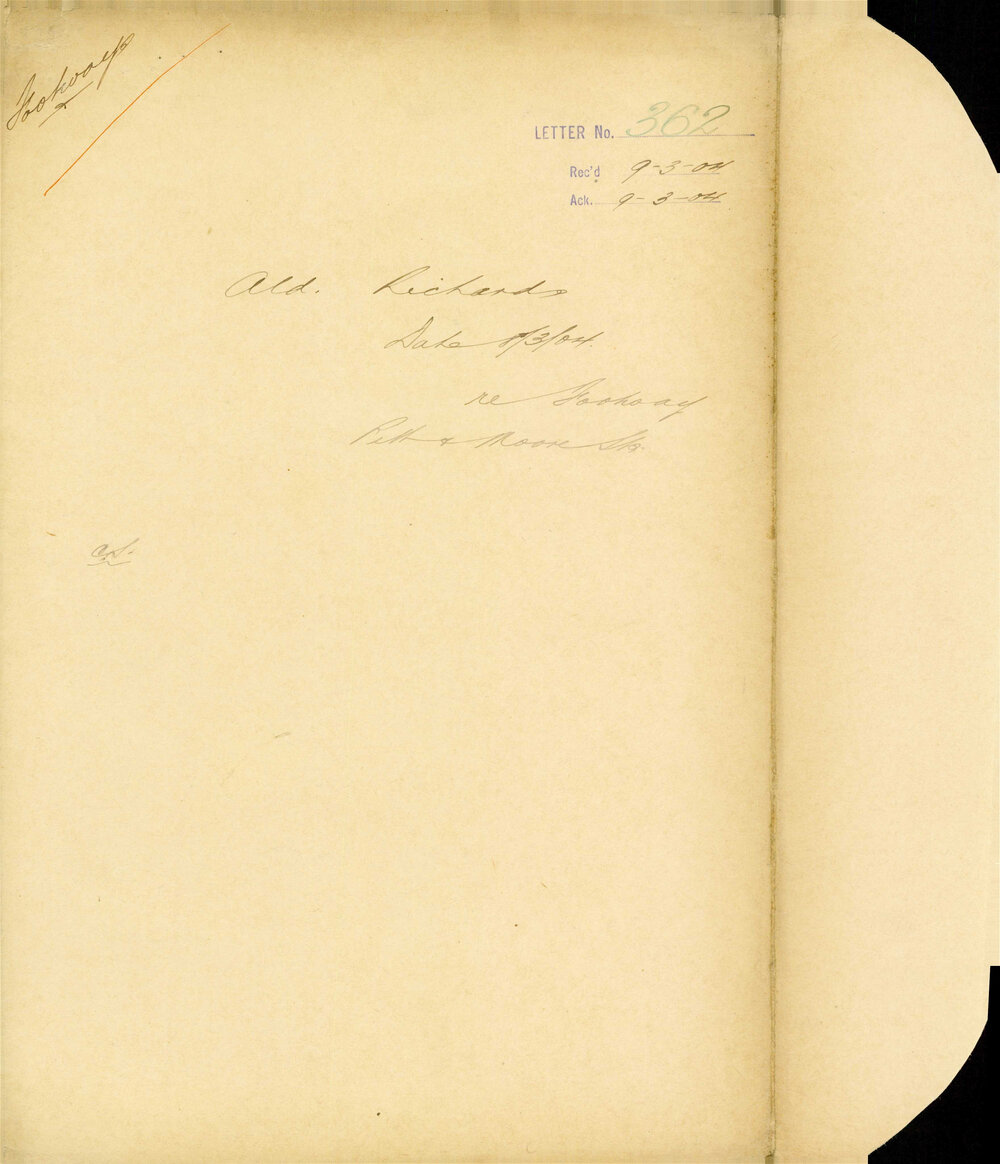 Footways
LETTER No. 362
Rec'd 9-3-04
Ack. 9-3-04
Ald. Richards
Date 8/3/04.
re Footway
Pitt & Moore Sts.